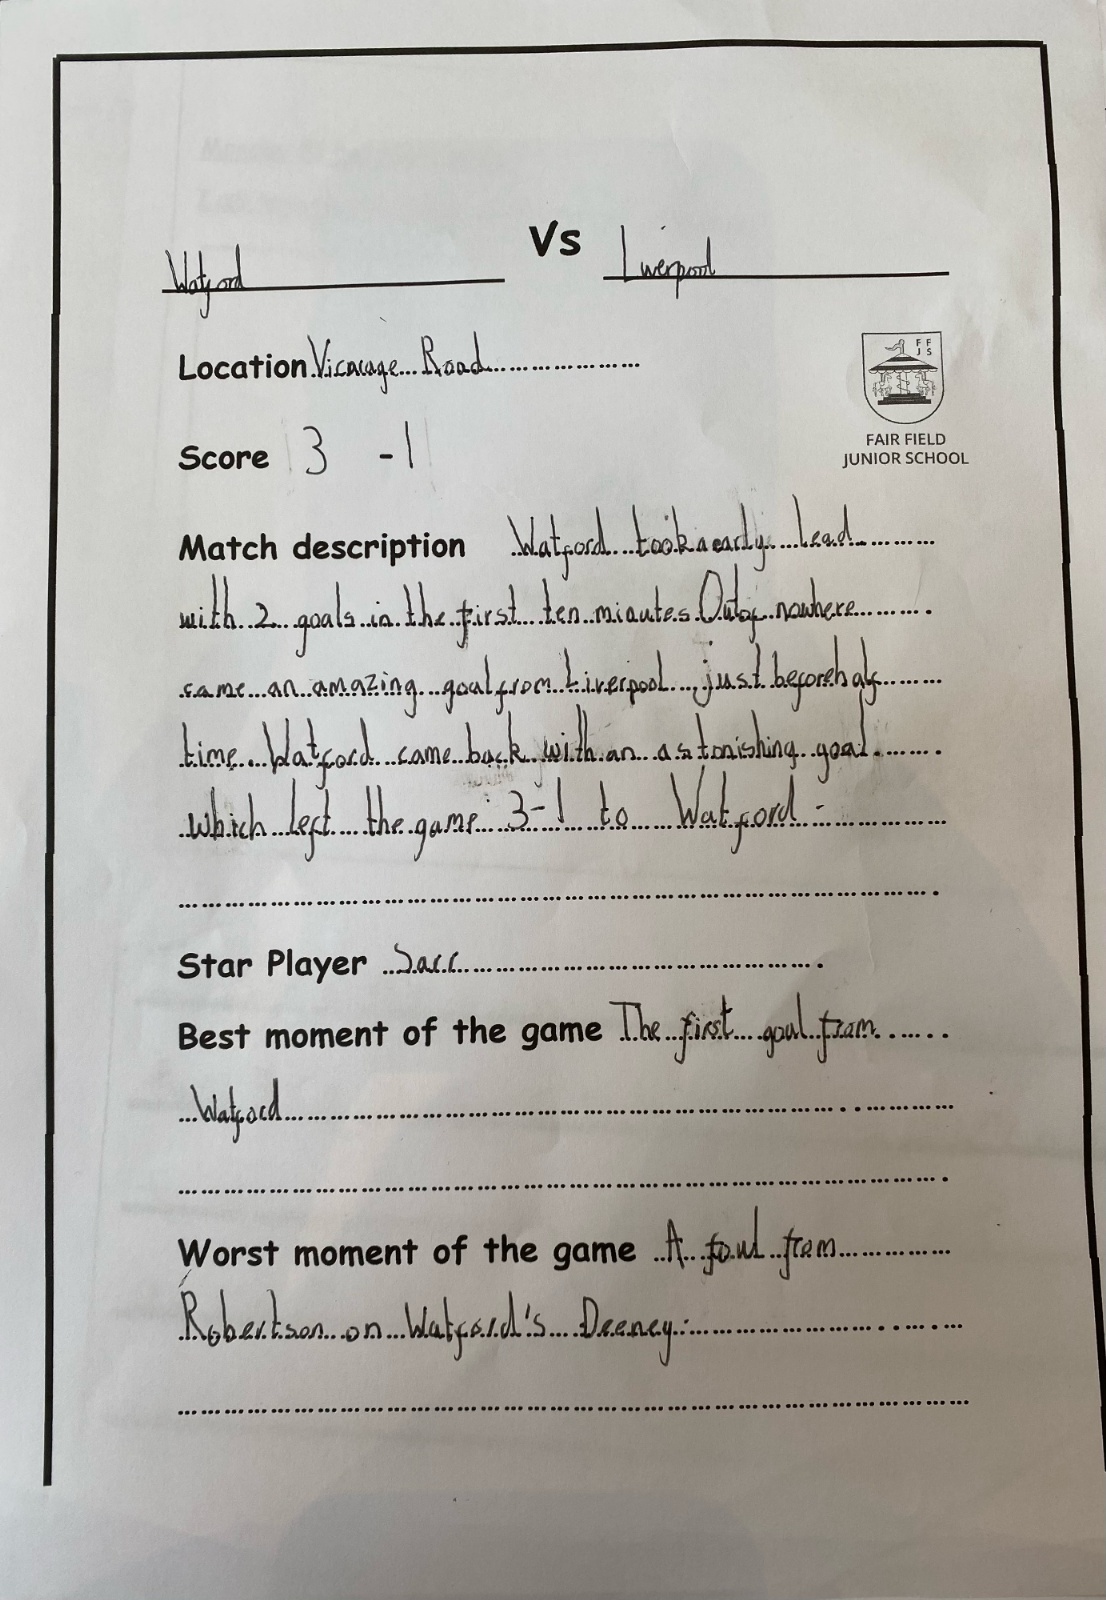 Watford Vs Liverpool
Location Vicarage Road
FF
JS
FAIR FIELD
JUNIOR SCHOOL
Score 3 - 1
Match description Watford took a early lead
with 2 goals in the first ten minutes. Out of nowhere
came an amazing goal from Liverpool, just before half
time. Watford came back with an astonishing goal
which left the game 3-1 to Watford.
Star Player Sarr
Best moment of the game The first goal from
Watford
Worst moment of the game A foul from
Robertson on Watford's Deeney.